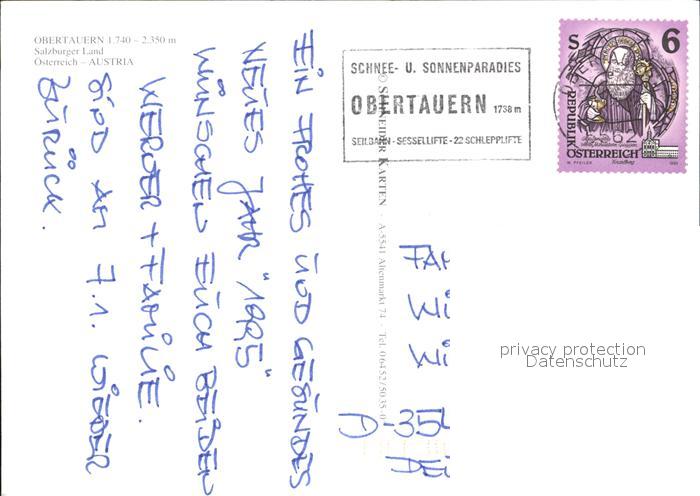 OBERTAUERN 1.740 – 2.350 m
Salzburger Land
Österreich – AUSTRIA
EIN FROHES UND GESUNDES
NEUES JAHR "1995"
WÜNSCHEN EUCH BEIDEN
WERNER + FAMILIE.
SIND AM 7.1. WIEDER
ZURÜCK.
© SCHNEIDER KARTEN · A-5541 Altenmarkt 74 · Tel. 06452/5035-0
SCHNEE- U. SONNENPARADIES
OBERTAUERN 1738 m
SEILBAHN-SESSELLIFTE-22 SCHLEPPLIFTE
S 6
REPUBLIK
ÖSTERREICH
W. PFEILER
FA
Wi
Wi
D-35
DE
privacy protection
Datenschutz